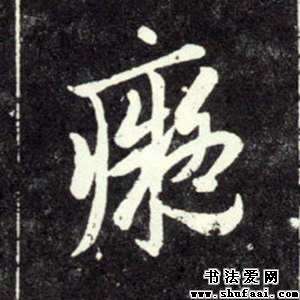 癡
书法爱网
www.shufaai.com